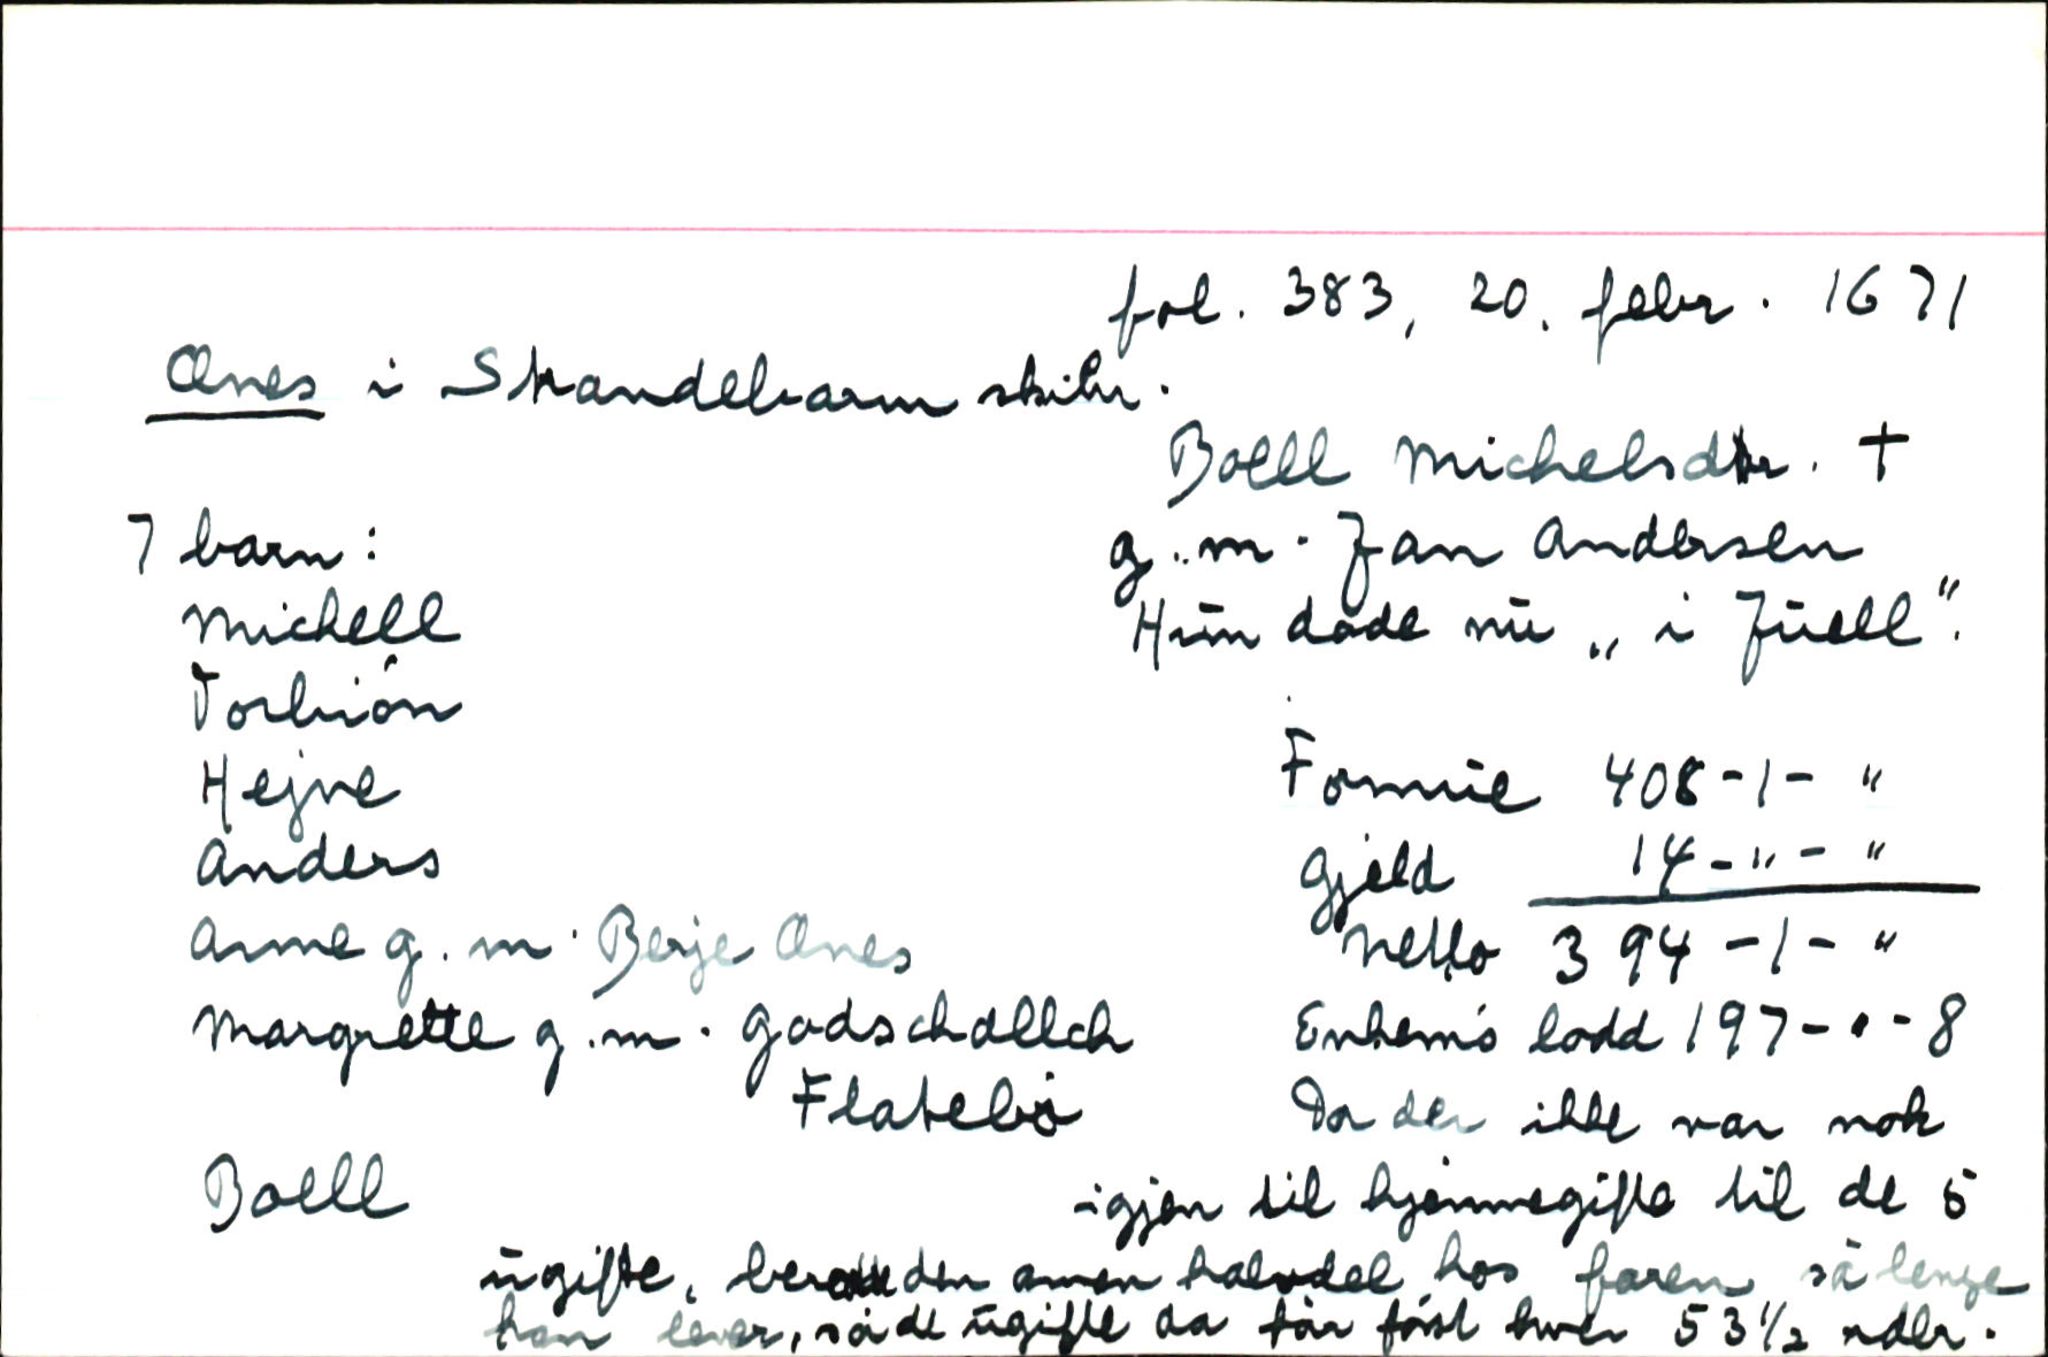 fol. 383, 20. febr. 1671
Ænes i Strandebarm skibr.
Boell Michelsdtr. †
7 barn:
g.m. Jan Andersen
Michell
Hun døde nu „i Juell".
Torbiøn
Hejne
Formue 408-1-"
Anders
Gjeld 14-"-"
Anne g.m. Berje Ænes
Netto 394-1-"
Margrette g.m. Godschallch
Enkem's lodd 197-"-8
Flatebø
Da der ikke var nok
Boell
igjen til hjemmegifte til de 5
ugifte, beror den annen halvdel hos faren så lenge
han lever, så de ugifte da får først hver 53 1/2 rdlr.